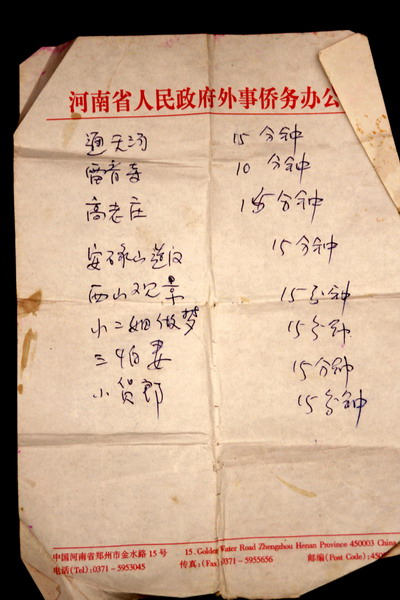 河南省人民政府外事侨务办公
通天河 15分钟
雷音寺 10分钟
高老庄 15分钟
安禄山 15分钟
西山观景 15分钟
小二姐做梦 15分钟
三怕妻 15分钟
小货郎 15分钟
中国河南省郑州市金水路15号 15. Golden Water Road Zhengzhou Henan Province 450003 China
电话(Tel):0371-5953045 传真:(Fax)0371-5955656 邮编(Post Code):450